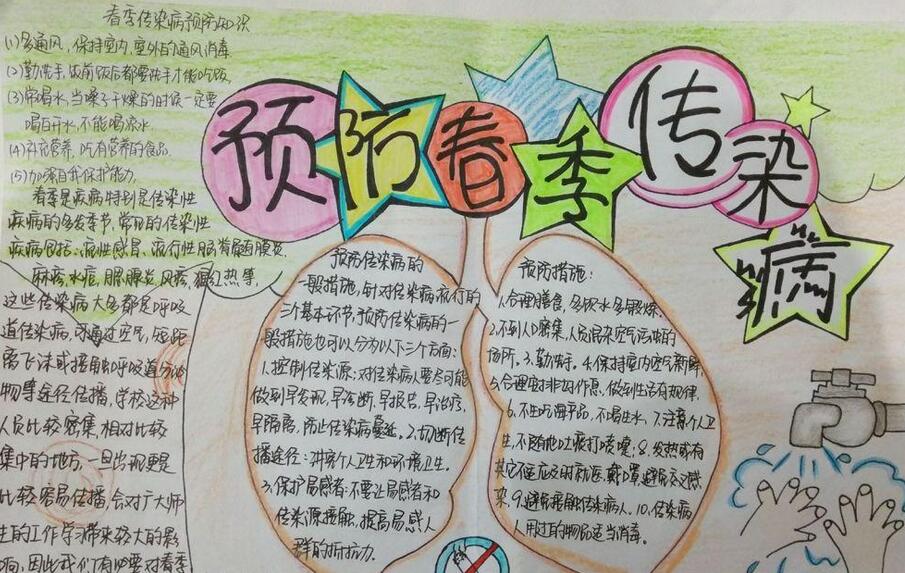 预防春季传染病
春季传染病预防知识
(1)多通风,保持室内,室外的通风消毒
(2)勤洗手,饭前饭后都要洗手才能吃饭
(3)常喝水,当嗓子干燥的时候一定要
喝白开水,不能喝凉水
(4)补充营养,吃有营养的食品.
(5)加强自我保护能力
春季是疾病特别是传染性
疾病的多发季节,常见的传染性
疾病包括:流性感冒、流行性脑脊髓膜炎、
麻疹、水痘、腮腺炎、风疹、猩红热等,
这些传染病大多都是呼吸
道传染病,可通过空气,短距
离飞沫或接触呼吸道分泌
物等途径传播,学校这种
人员比较密集,相对比较
集中的地方,一旦出现更是
比较容易传播,会对广大师
生的工作学习带来较大的影
响,因此我们有必要对春季
预防传染病的
一般措施,针对传染病流行的
三个基本环节,预防传染病的一
般措施也可以分为以下三个方面:
1.控制传染源:对传染病人要尽可能
做到早发现,早诊断、早报告,早治疗,
早隔离,防止传染病蔓延。2.切断传
播途径:讲究个人卫生和环境卫生。
3.保护易感者:不要让易感者和
传染源接触,提高易感人
群的抵抗力。
预防措施:
1.合理膳食,多饮水多锻炼.
2.不到人口密集,人员混杂空气污浊的
场所,3.勤洗手.4.保持室内空气新鲜
5.合理安排好作息,做到生活有规律,
6.不生吃海产品,不喝生水,7.注意个人卫
生.不随地吐痰打喷嚏;8.发热或有
其它不适应及时就医,戴口罩,避免交叉感
染,9.避免接触传染病人。10.传染病
人用过的物品适当消毒。